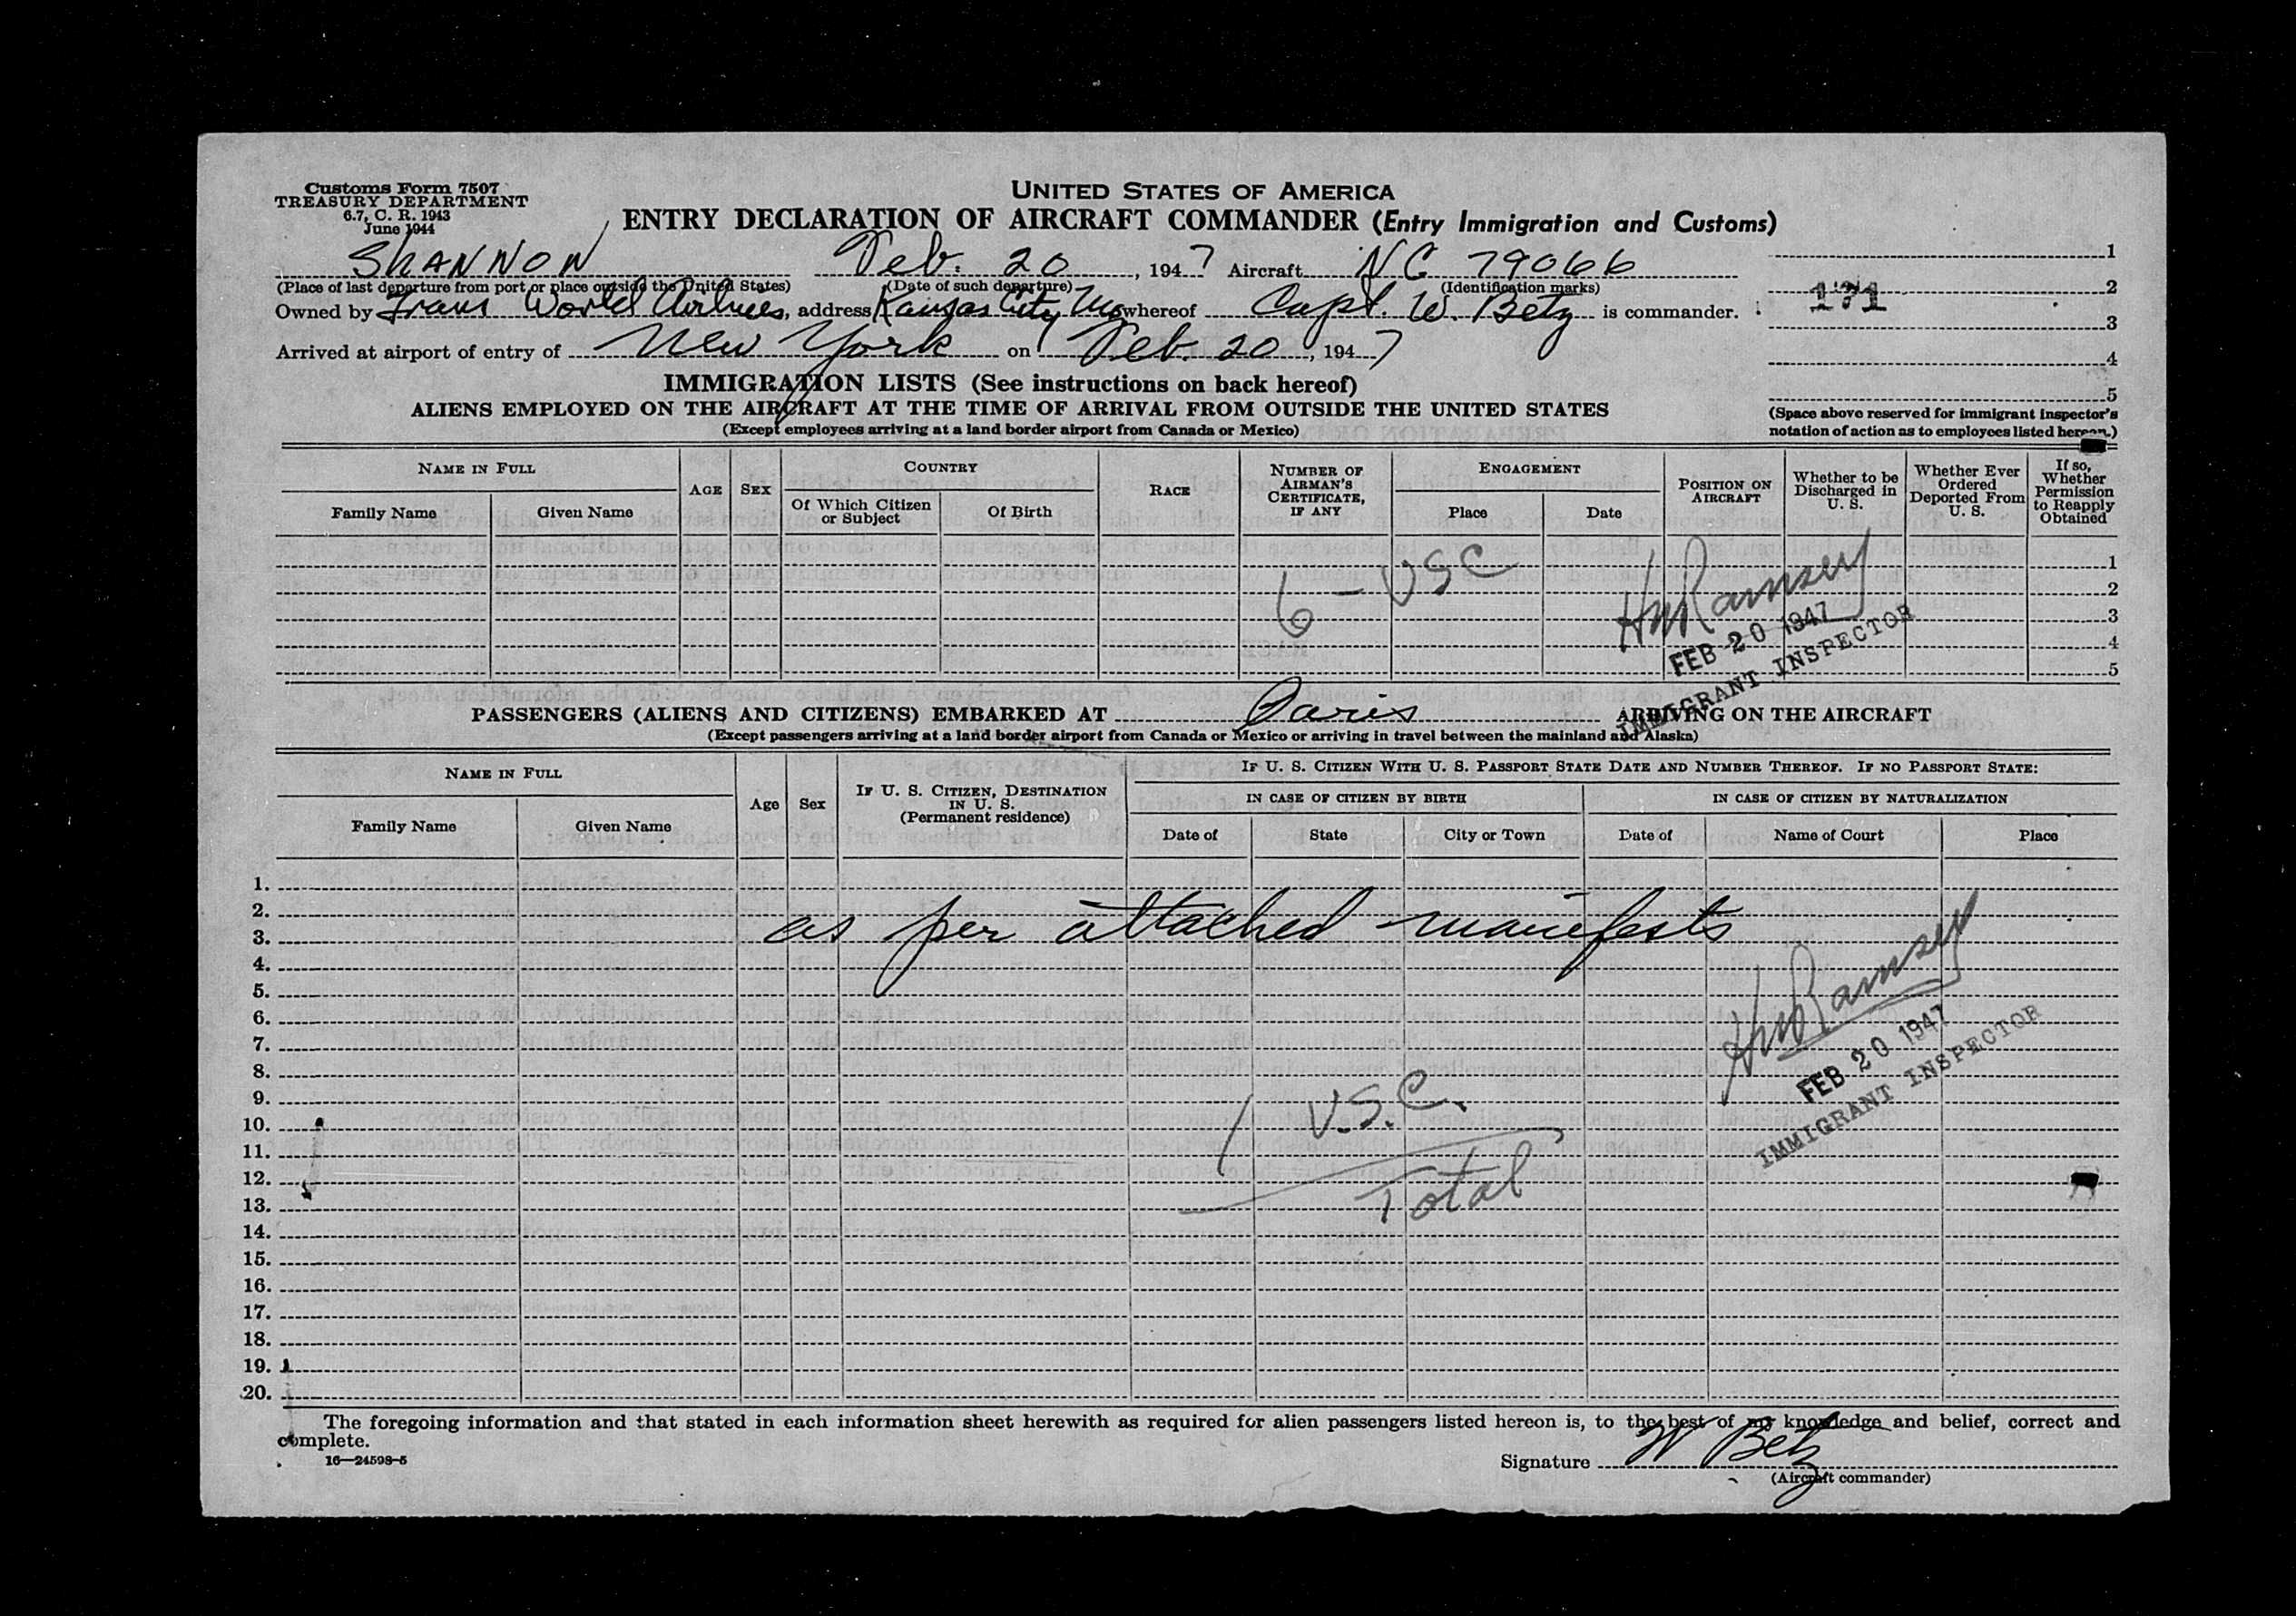 Customs Form 7507
TREASURY DEPARTMENT
6.7, C. R. 1943
June 1944
UNITED STATES OF AMERICA
ENTRY DECLARATION OF AIRCRAFT COMMANDER (Entry Immigration and Customs)
SHANNON Feb. 20, 1947 Aircraft NC 79066
(Place of last departure from port or place outside the United States) (Date of such departure) (Identification marks)
Owned by Trans World Airlines, address Kansas City, Mo whereof Capt. W. Betz is commander.
Arrived at airport of entry of New York on Feb. 20, 1947
1
171 2
3
4
5
(Space above reserved for immigrant inspector's
notation of action as to employees listed hereon.)
IMMIGRATION LISTS (See instructions on back hereof)
ALIENS EMPLOYED ON THE AIRCRAFT AT THE TIME OF ARRIVAL FROM OUTSIDE THE UNITED STATES
(Except employees arriving at a land border airport from Canada or Mexico)
NAME IN FULL
Family Name Given Name
AGE
SEX
COUNTRY
Of Which Citizen or Subject
Of Birth
RACE
NUMBER OF AIRMAN'S CERTIFICATE, IF ANY
ENGAGEMENT
Place Date
POSITION ON AIRCRAFT
Whether to be Discharged in U. S.
Whether Ever Ordered Deported From U. S.
If so, Whether Permission to Reapply Obtained
1
2
3
4
5
6 - USC
HWRamsey
FEB 20 1947
IMMIGRANT INSPECTOR
PASSENGERS (ALIENS AND CITIZENS) EMBARKED AT Paris ARRIVING ON THE AIRCRAFT
(Except passengers arriving at a land border airport from Canada or Mexico or arriving in travel between the mainland and Alaska)
NAME IN FULL
Family Name Given Name
Age
Sex
IF U. S. CITIZEN, DESTINATION IN U. S.
(Permanent residence)
IF U. S. CITIZEN WITH U. S. PASSPORT STATE DATE AND NUMBER THEREOF. IF NO PASSPORT STATE:
IN CASE OF CITIZEN BY BIRTH
Date of State City or Town
IN CASE OF CITIZEN BY NATURALIZATION
Date of Name of Court Place
1.
2.
as per attached manifests
3.
4.
5.
6.
7.
8.
HWRamsey
FEB 20 1947
IMMIGRANT INSPECTOR
9.
10.
1 U.S.C.
11.
12.
Total
13.
14.
15.
16.
17.
18.
19.
20.
The foregoing information and that stated in each information sheet herewith as required for alien passengers listed hereon is, to the best of my knowledge and belief, correct and
complete.
16—24598-5
Signature W Betz
(Aircraft commander)